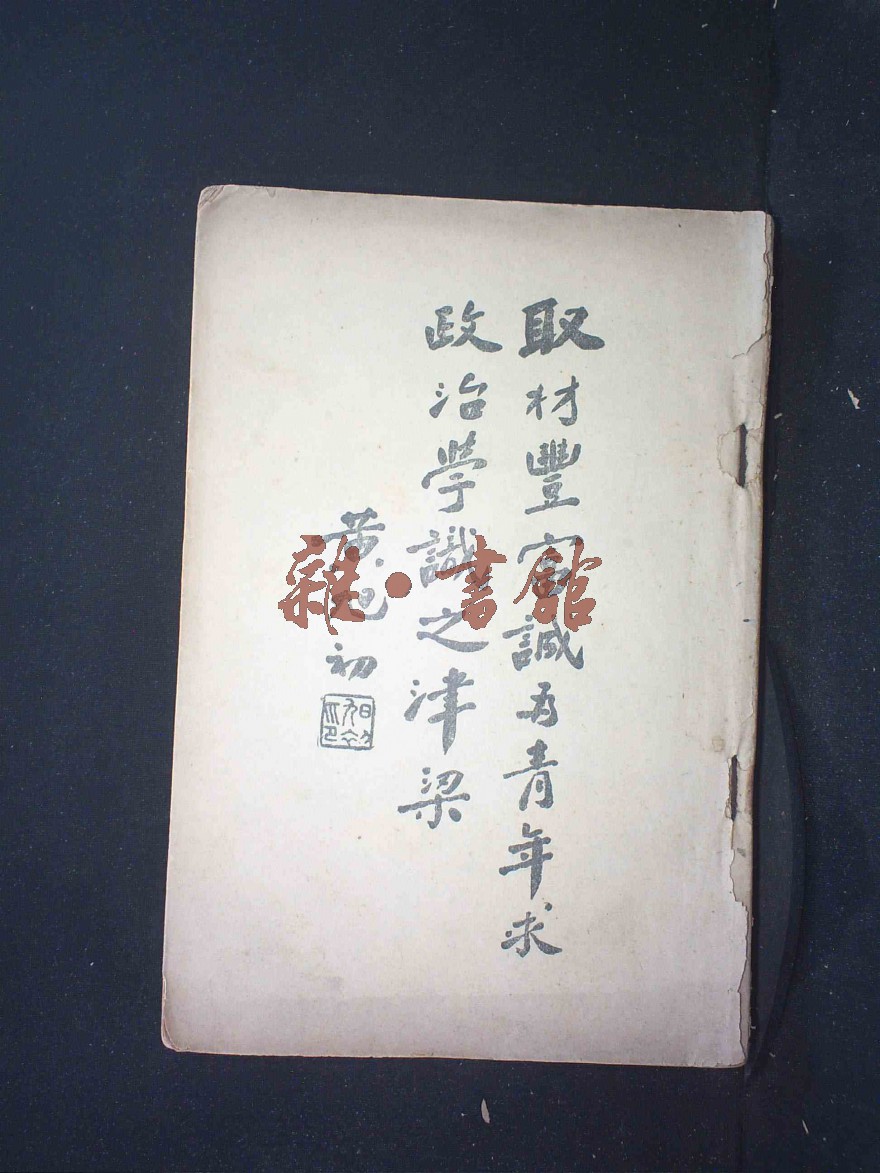 取材豐富誠為青年求
政治學識之津梁
黃旭初
雜·書館